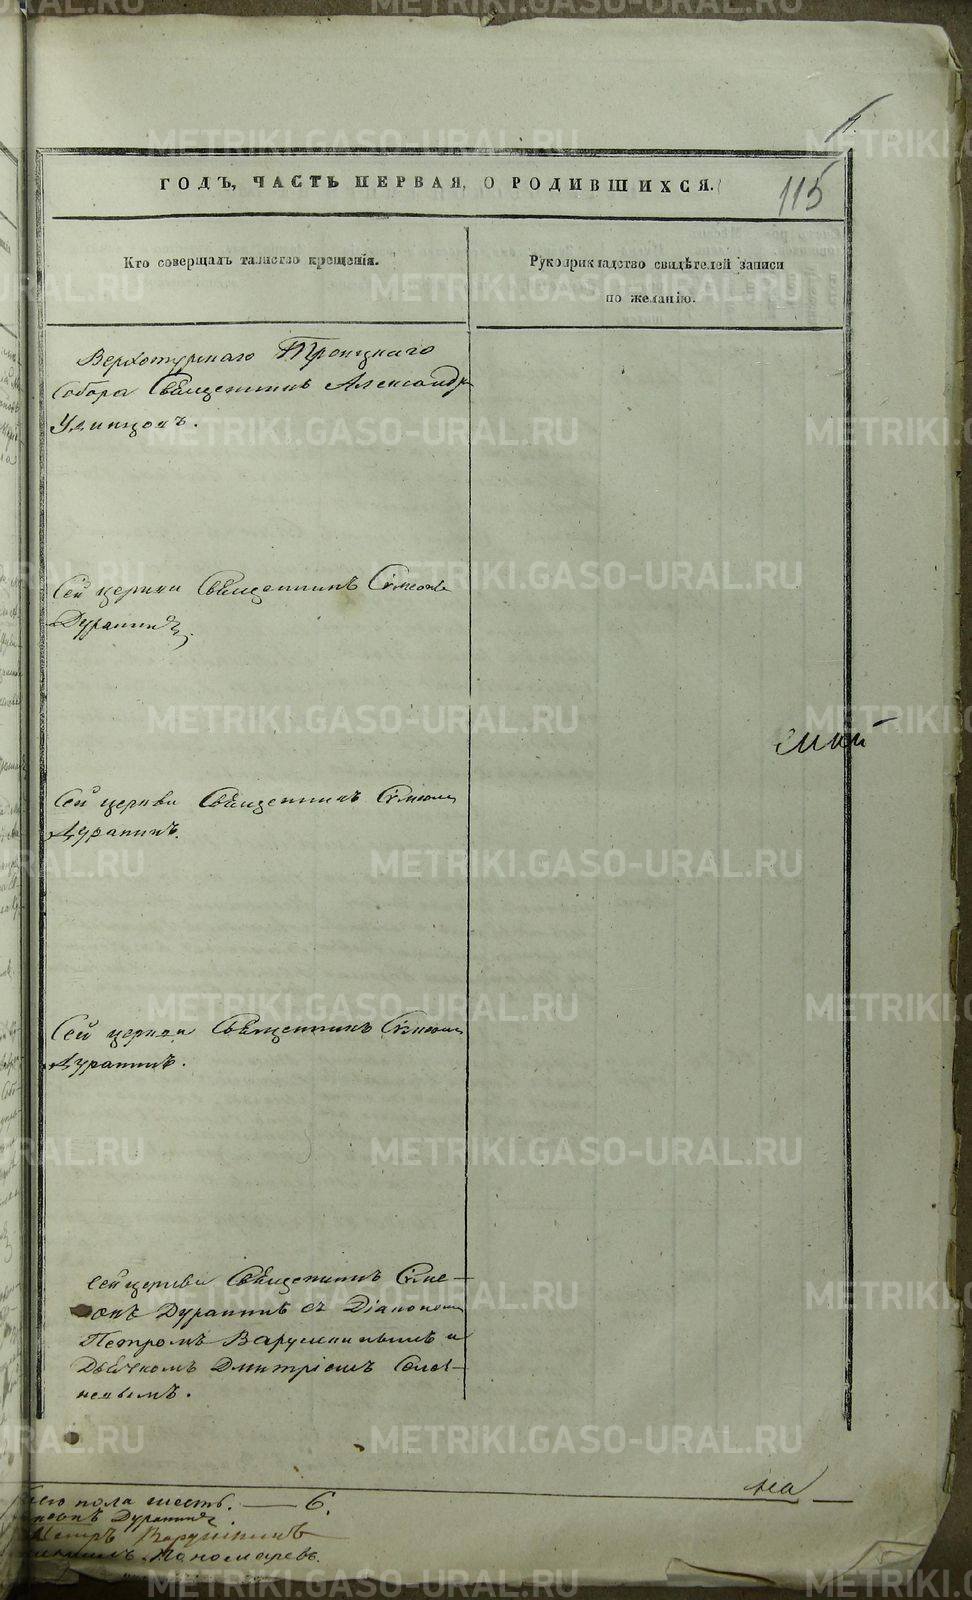 ГОДЪ, ЧАСТЬ ПЕРВАЯ, О РОДИВШИХСЯ.
115
Кто совершалъ таинство крещенія.
Рукоприкладство свидѣтелей записи
по желанію.
Верхотурскаго Троицкаго
Собора Священникъ Александръ
Удинцовъ.
Сей церкви Священникъ Симеонъ
Дуранинъ.
Сей церкви Священникъ Симеонъ
Дуранинъ.
Сей церкви Священникъ Симеонъ
Дуранинъ.
Сей церкви Священникъ Симе-
онъ Дуранинъ съ Діакономъ
Петромъ Варушкинымъ и
Дьячкомъ Дмитріемъ
пола шесть. — 6.
Дуранинъ.
Петръ Варушкинъ
Пономаревъ.
на
METRIKI.GASO-URAL.RU